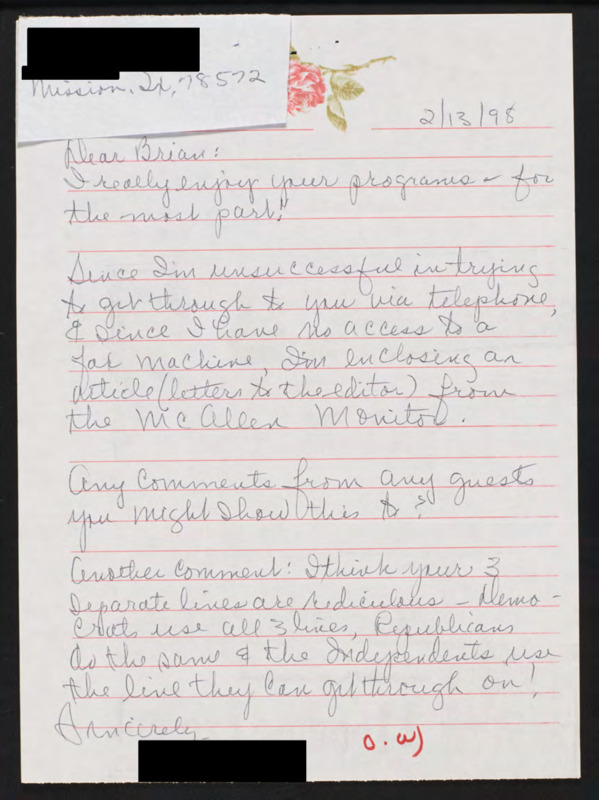 Mission, Tx, 78572
2/13/98
Dear Brian:
I really enjoy your programs - for
the most part!
Since I'm unsuccessful in trying
to get through to you via telephone,
& since I have no access to a
fax machine, I'm enclosing an
article (letters to the editor) from
the McAllen Monitor.
Any comments from any guests
you might show this to?
Another comment: I think your 3
separate lines are rediculous - Demo-
crats use all 3 lines, Republicans
do the same & the Independents use
the line they can get through on!
Sincerely,
O.W)